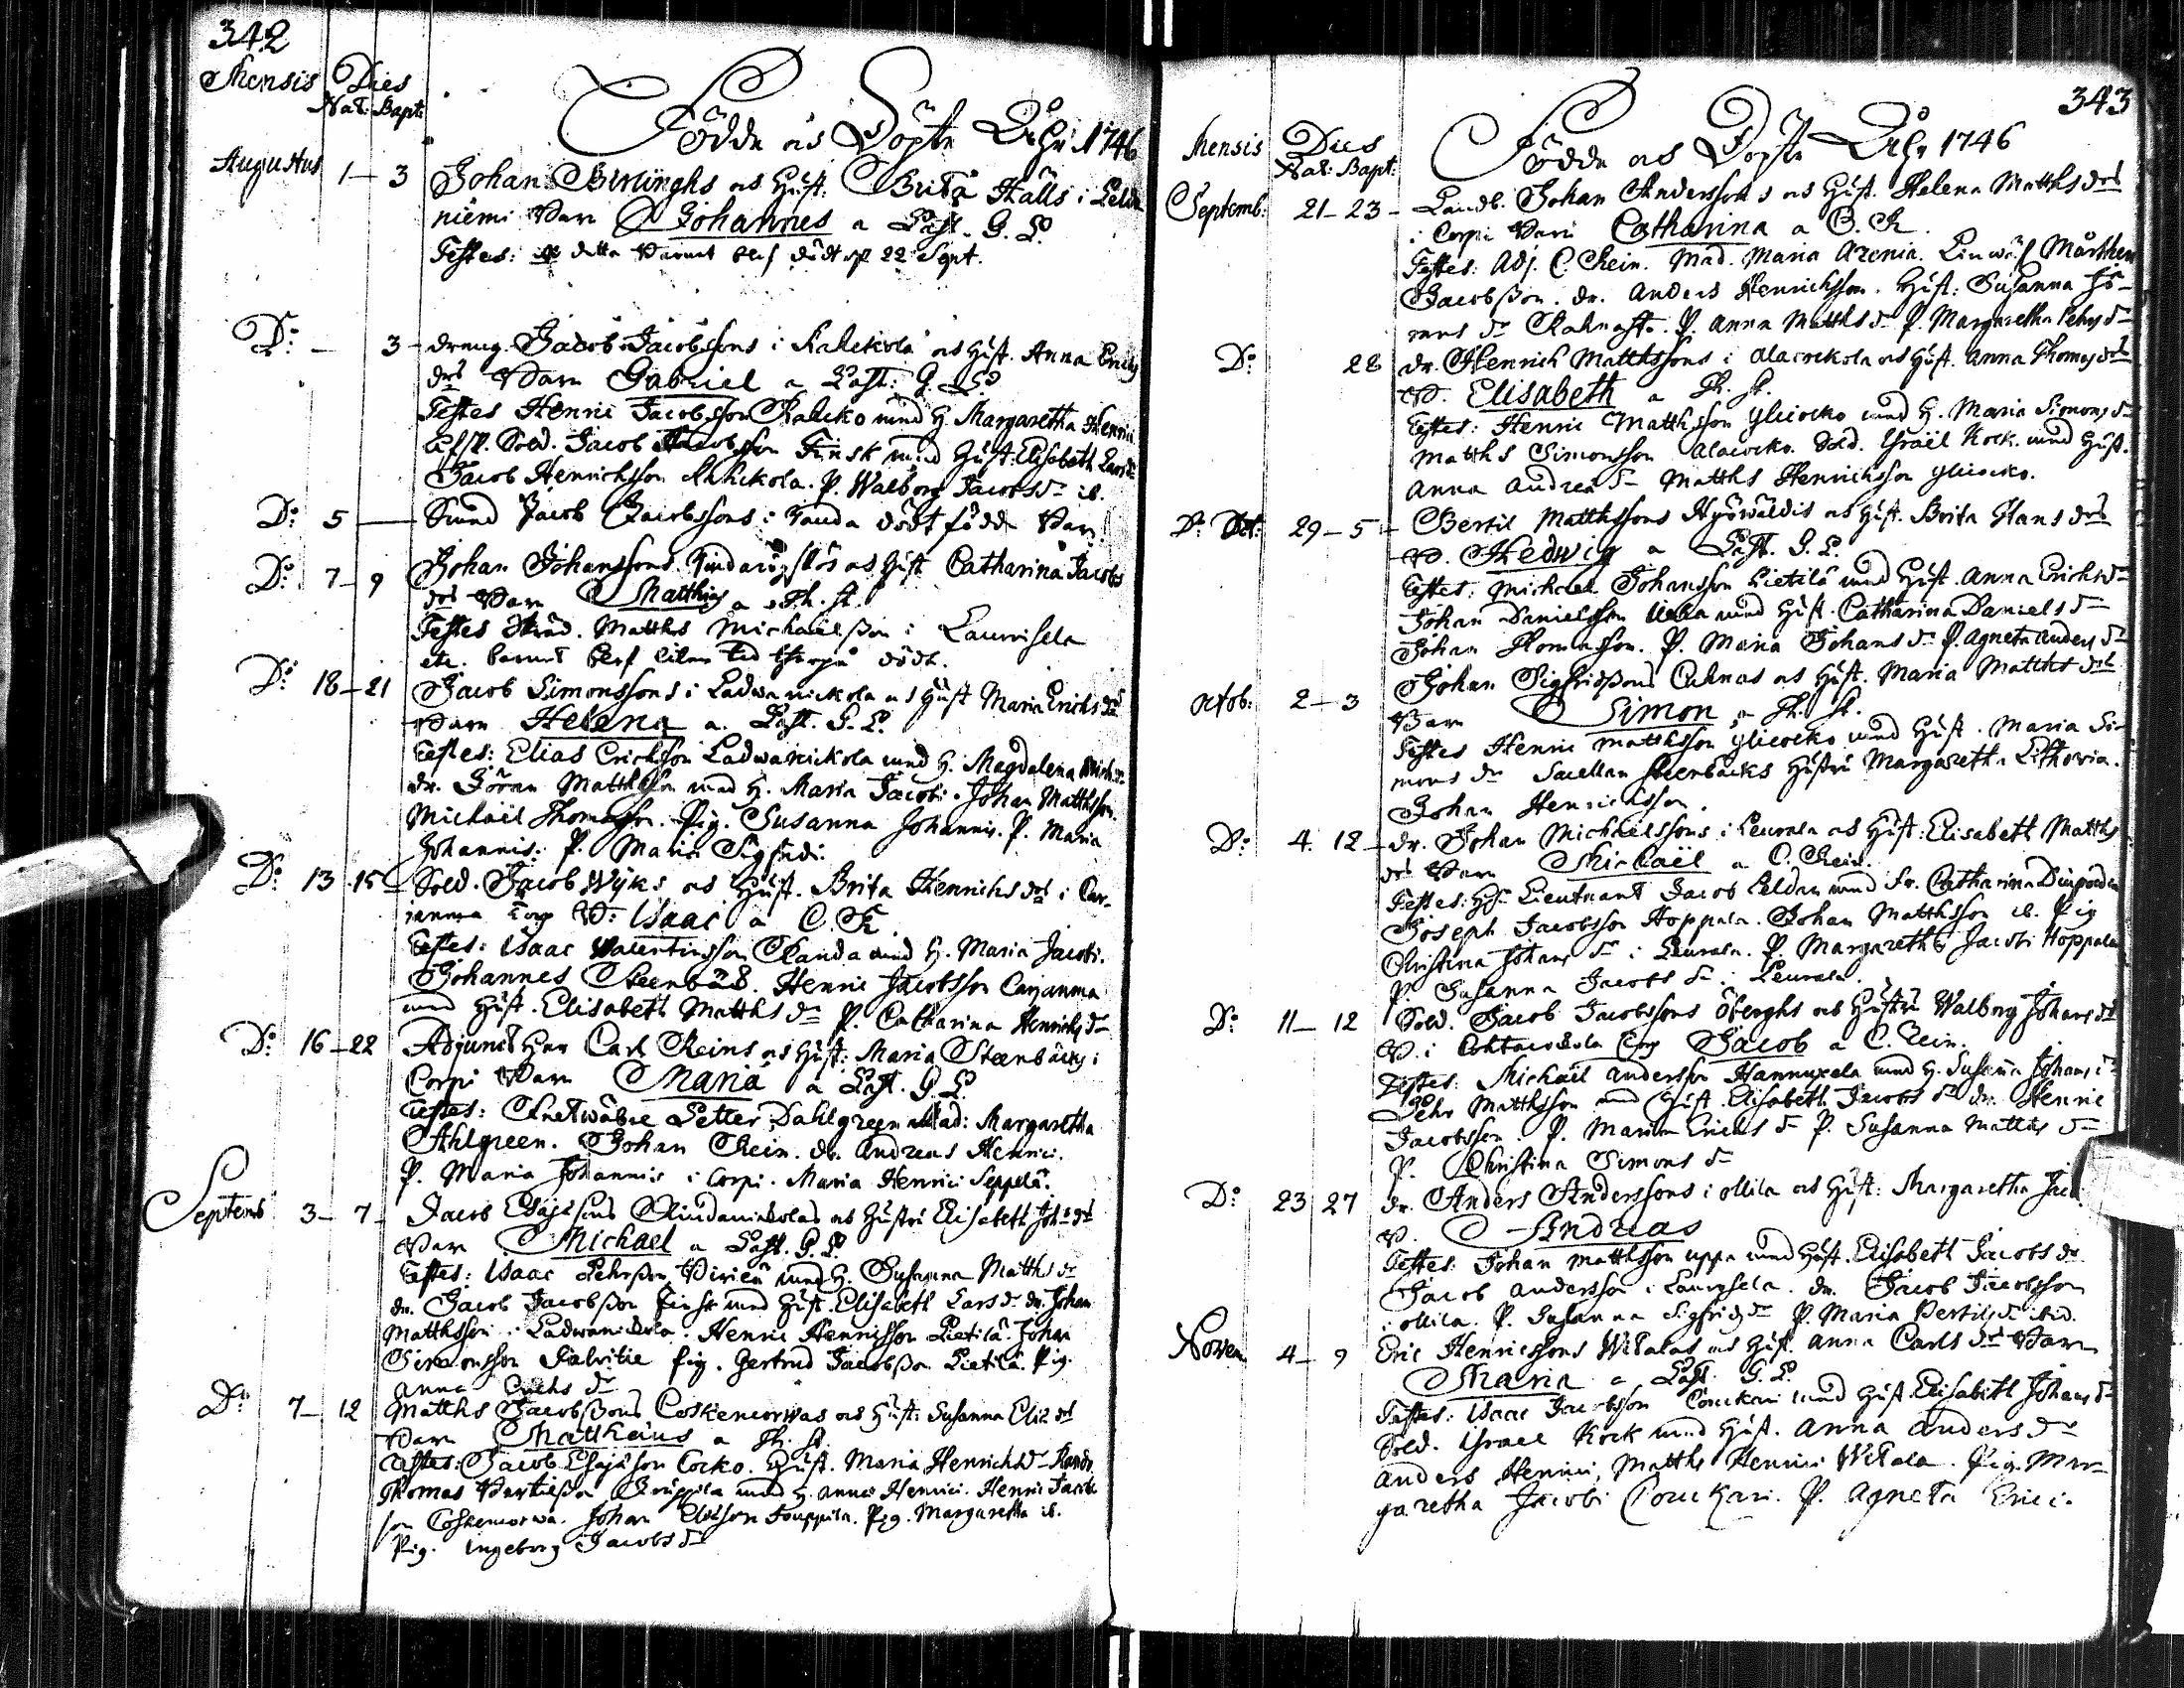 342
Mensis Dies
Nat: Bapt:
Födde och Döpte Åhr 1746
Augustus 1 – 3 Johan Berlinghs och Hust. Brita Hälls i
niemi Barn Johannes a Past. G. P.
Testes: detta Barnet blef dödt d. 22 Sept.
D:o – 3 – dreng. Jacob Jacobssons i och Hust. Anna Erichs
d:r Barn Gabriel a Past: G. P.
Testes Henric Jacobsson med H. Margaretha Henrici
Sold. Jacob Jacobsson Finsk med Hust. Elisabeth Lars d:r
Jacob Henrichsson P. Walborg Jacobs d:r ib.
D:o 5 — Jacob Jacobssons i dödt födde Barn
D:o 7 – 9 Johan Johanssons och Hust. Catharina Jacobs
d:r Barn Matthias a Th. St.
Testes Matths Michaelsson i Laurisela
etc. Barnet blef dödt.
D:o 18 – 21 Jacob Simonssons i Ladwanickola och Hust Maria Erichs d:r
Barn Helena a. Past. G. P.
Testes: Elias Erichsson Ladwanickola med H. Magdalena
dr. Göran Matthsson med H. Maria Jacobi. Johan Matthsson
Michaël Thomasson. Pig. Susanna Johannis. P. Maria
Johannis: P. Maria Sigfridi:
D:o 13 – 15 Sold. Jacob Wijks och Hust. Brita Henrichs d:r i Car-
janma Torp B: Isaac a C. R.
Testes: Isaac Valentinsson med H. Maria Jacobi.
Johannes Steenbäck. Henric Jacobsson Carjanma
med Hust. Elisabeth Matths d:r P. Catharina Henrichs d:r
D:o 16 – 22 Adjunct Herr Carl Reins och Hust: Maria Steenbäcks i
Corpi Barn Maria a Past. G. P.
Testes: Petter Dahlgreen Mad: Margaretha
Ahlgreen. Johan Rein. dr. Andreas Henrici.
P. Maria Johannis i Corpi. Maria Henrici Seppelä.
Septemb 3 – 7 – Jacob Esajæsons och Hustru Elisabeth Joh: d:r
Barn Michael a Past. G. P.
Testes: Isaac Pehrsson med H. Susanna Matths d:r
dr. Jacob Jacobsson Finsk med Hust. Elisabeth Lars d:r dr. Johan
Matthsson i Ladwanickola. Henric Henricsson Pietilä. Johan
Simonsson Pig. Gertrud Jacobsson Pietilä. Pig.
Anna Erichs d:r
D:o 7 – 12 Matths Jacobssons Coskencorwas och Hust: Susanna Eliæ d:r
Barn Mattheius a Th. St.
Testes: Jacob Esajæson Cocko. Hust. Maria Henrichs d:r
Thomas med H. Anna Henrici. Henric Jacobs
son Coskencorwa. Johan Pig. Margaretha ib.
Pig. Ingeborg Jacobs d:r
343
Mensis Dies
Nat: Bapt:
Födde och Döpte Åhr 1746
Septemb: 21 – 23 – Landb. Johan Anderssons och Hust. Helena Matths d:r
i Corpi Barn Catharina a C. R.
Testes: Adj. C. Rein. Mad. Maria Arenia. Mårthen
Jacobsson. dr. Anders Henrichsson. Hust: Susanna Si-
mons d:r P. Anna Matths d:r P. Margaretha Pehrs d:r
D:o 28 dr. Henrich Matthssons i Alacockola och Hust. Anna Thomas d:r
B. Elisabeth a Th. St.
Testes: Henric Matthsson Ylicocko med H. Maria Simons d:r
Matths Simonsson Alacocko. Sold. Israël Kock. med Hust.
Anna Andreæ d:r Matths Henrichsson Ylicocko.
D:o Oct: 29 – 5 – Bertil Matthssons och Hust. Brita Hans d:r
B. Hedwig a Past. G. P.
Testes: Michael Johansson Pietilä med Hust. Anna Erichs d:r
Johan Danielsson med Hust. Catharina Daniels d:r
Johan Thomasson. P. Maria Johans d:r P. Agneta Anders d:r
Octob: 2 – 3 Johan Sigfridssons och Hust. Maria Matths d:r
Barn Simon a Th. St.
Testes Henric Matthsson Ylicocko med Hust. Maria Si-
mons d:r Steenbäcks Hustru Margaretha Lithovia.
Johan Henrichsson.
D:o 4. 12 – dr. Johan Michaelssons i Leurala och Hust: Elisabeth Matths
d:r Barn Michaël a C. Rein.
Testes: Lieutnant Jacob med Fr. Catharina
Joseph Jacobsson Hoppala. Johan Matthsson ib. Pig
Christina Johans d:r i Leurala. P. Margareth Jacobi Hoppala
P. Susanna Jacobs d:r i Leurala.
D:o 11 – 12 Sold. Jacob Jacobssons Öberghs och Hustru Walborg Johans d:r
B. i Torp Jacob a C. Rein.
Testes: Michaël Andersson Hannuxela med H. Susanna Johans d:r
Pehr Matthsson med Hust. Elisabeth Jacobs d:r dr. Henric
Jacobsson. P. Maria Erichs d:r P. Susanna Matths d:r
P. Christina Simons d:r
D:o 23 27 dr. Anders Anderssons i Ollila och Hust: Margaretha Jac
B. Andreas
Testes: Johan Matthsson Uppa med Hust. Elisabeth Jacobs d:r
Jacob Andersson i Laurisela. dr. Jacob Jacobsson
i Ollila. P. Susanna Sigfrids d:r P. Maria Bertils d:r ibid.
Novem 4 – 9 Eric Henricssons Witalas och Hust. Anna Carls d:r Barn
Maria a Past. G. P.
Testes: Isaac Jacobsson Couckari med Hust. Elisabeth Johans d:r
Sold. Israel Kock med Hust. Anna Anders d:r
Anders Henrici, Matths Henrici Witala. Pig. Mar-
garetha Jacobi Couckari. P. Agneta Erici.